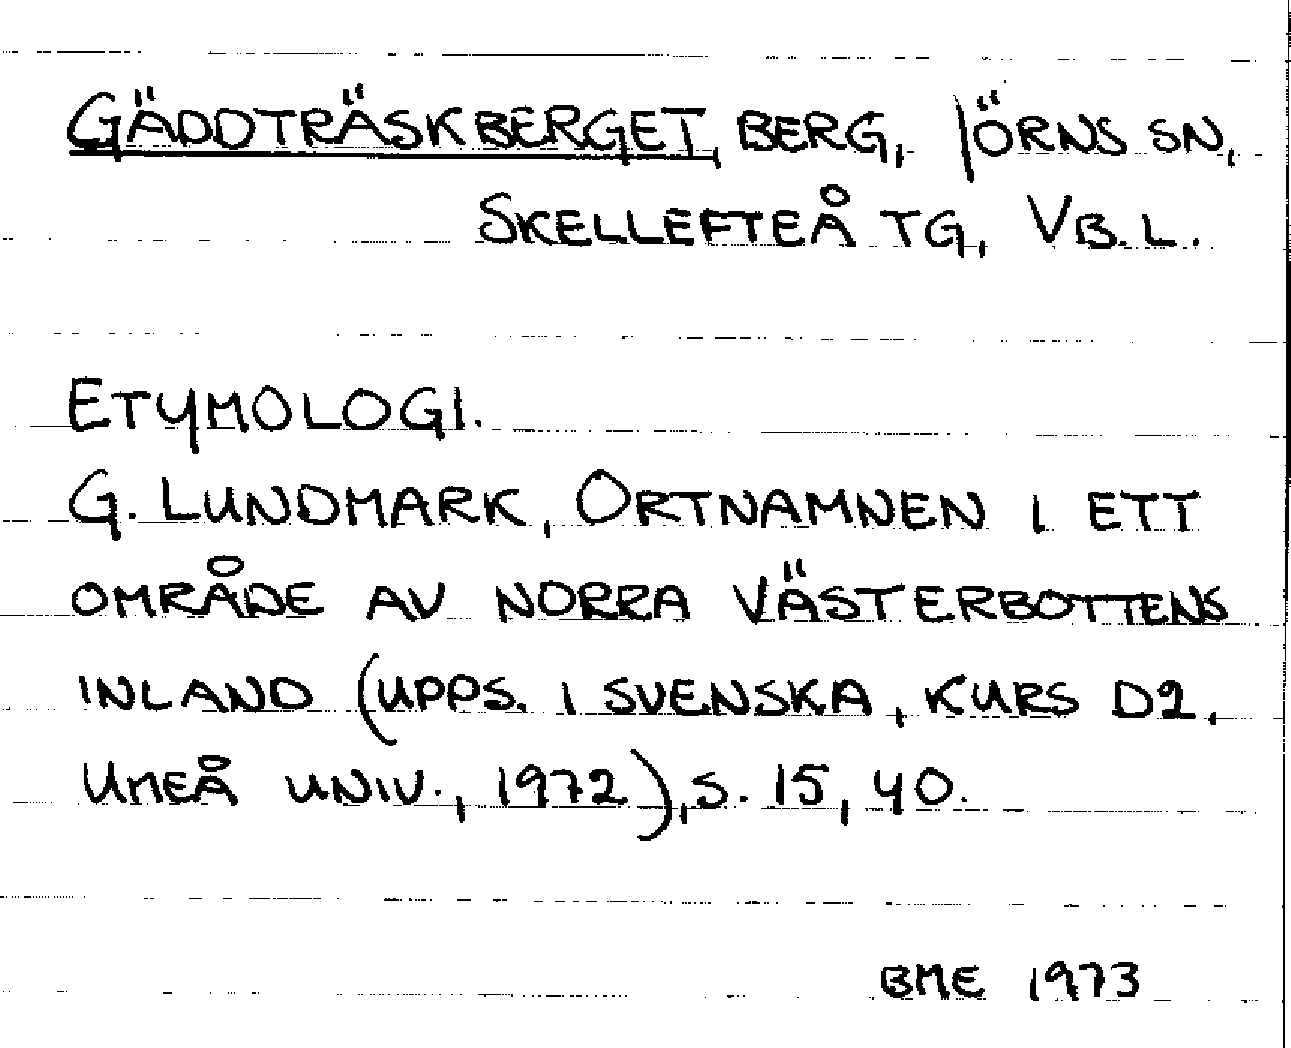 GÄDDTRÄSKBERGET, BERG, JÖRNS SN,
SKELLEFTEÅ TG, VB. L.
ETYMOLOGI.
G. LUNDMARK, ORTNAMNEN I ETT
OMRÅDE AV NORRA VÄSTERBOTTENS
INLAND (UPPS. I SVENSKA, KURS D2,
UMEÅ UNIV., 1972), S. 15, 40.
BME 1973